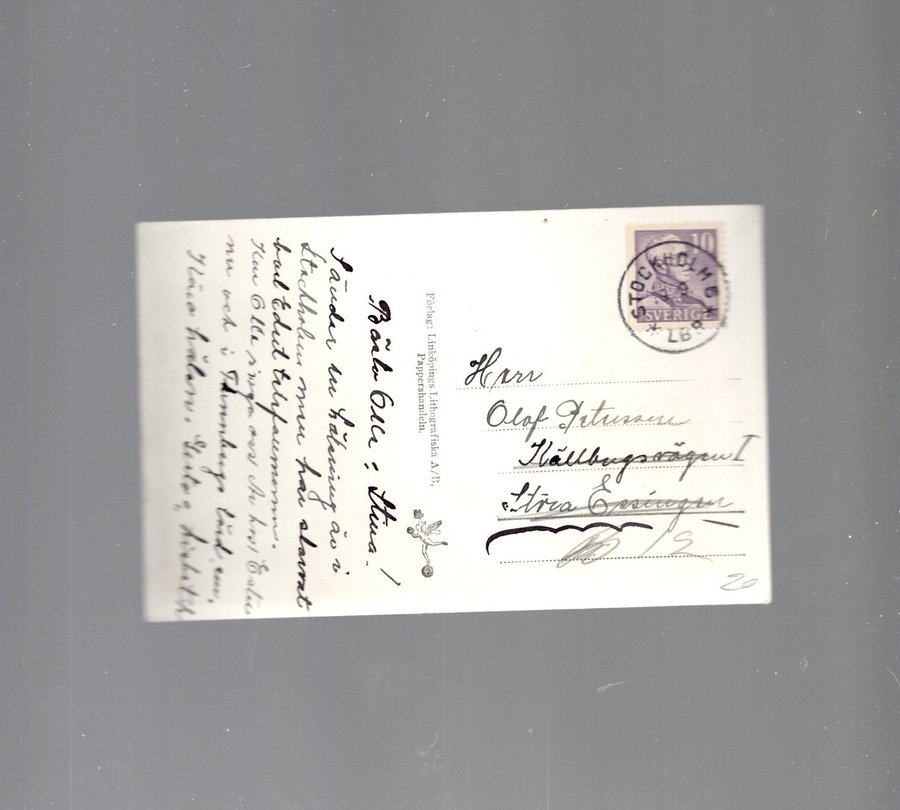 Bästa Olle: Stina!
Sänder en hälsning är i
Stockholm men har slarvat
bort Edert telefonnummer.
Kan Olle ringa oss
nu och i
Kära hälsn.
Förlag: Linköpings Lithografiska A/B,
Pappershandeln.
10
SVERIGE
STOCKHOLM 6
LBR
Herr
Olof Petersson
Källbugsvägen I
Stora Essingen
20